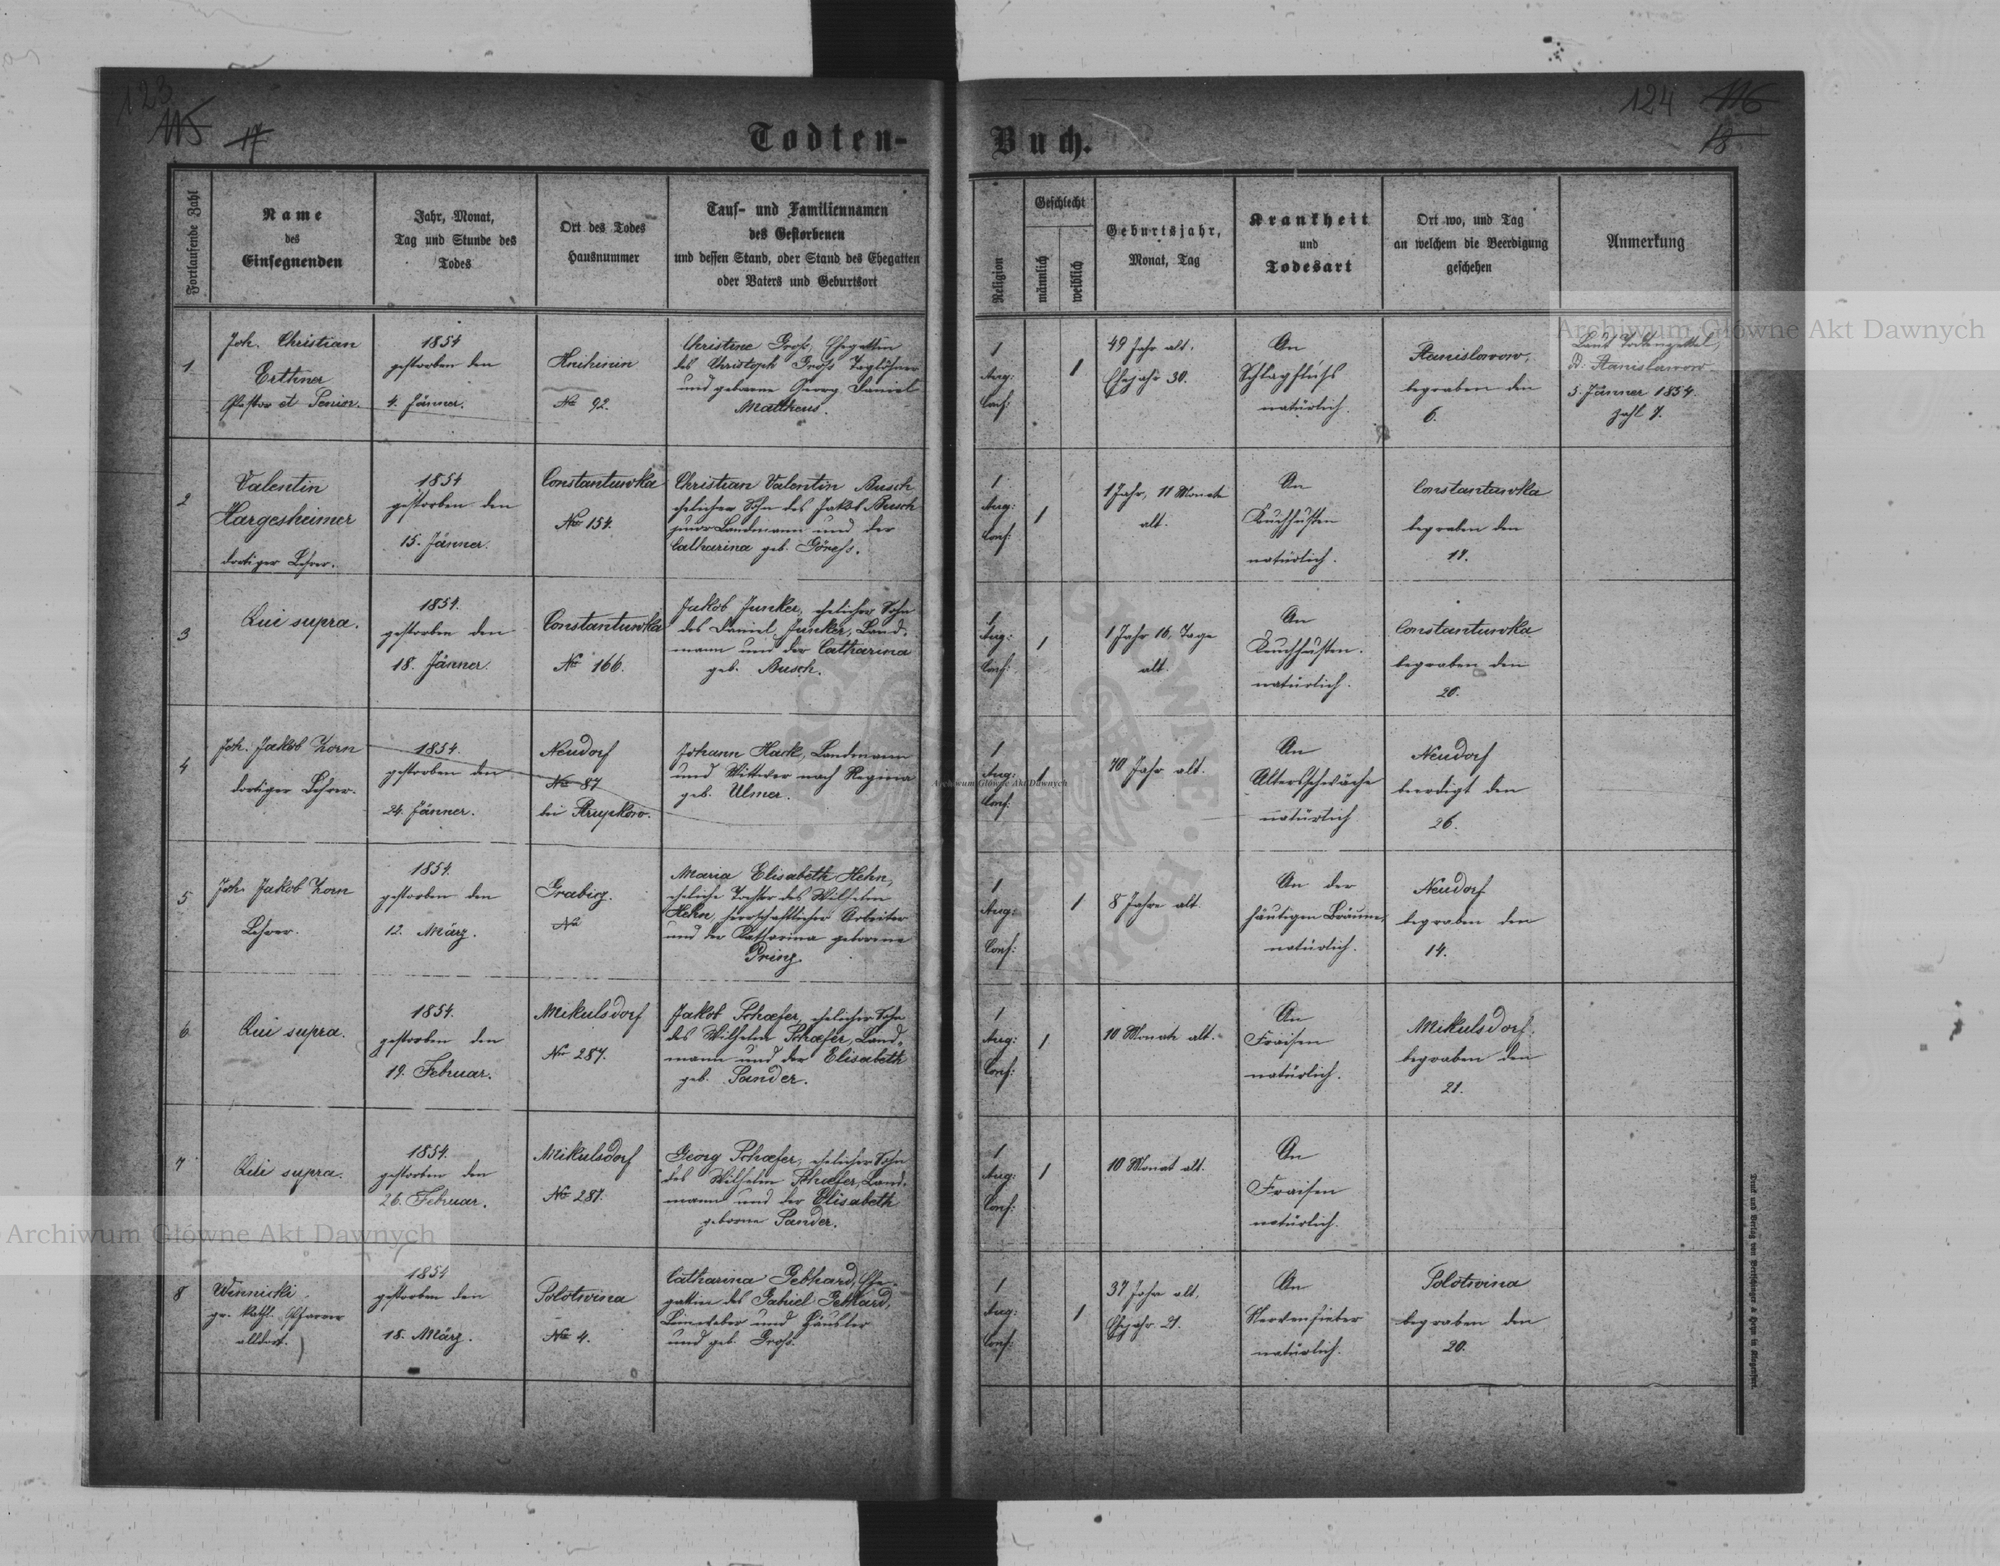 123
115
17
124
116
18
Todten-
Buch.
Fortlaufende Zahl
Name
des
Einsegnenden
Jahr, Monat,
Tag und Stunde des
Todes
Ort des Todes
Hausnummer
Tauf- und Familiennamen
des Gestorbenen
und dessen Stand, oder Stand des Ehegatten
oder Vaters und Geburtsort
Religion
Geschlecht
männlich
weiblich
Geburtsjahr,
Monat, Tag
Krankheit
und
Todesart
Ort wo, und Tag
an welchem die Beerdigung
geschehen
Anmerkung
1
Joh. Christian
Erthner
Pastor et Senior.
1854
gestorben den
4. Jänner.
Knihinin
No 92.
Christine Groß, Ehegattin
des Christoph Groß Taglöhner
und geborne Georg Daniel
Mattheus.
1
Aug:
Conf:
1
49 Jahr alt.
Ehejahr 30.
An
Schlagfluß
natürlich.
Stanislawow,
begraben den
6.
Laut Todtenzettel,
D. Stanislawow
5. Jänner 1854.
Zahl 7.
2
Valentin
Hargesheimer
dortiger Lehrer.
1854
gestorben den
15. Jänner.
Constantuwka
Nro 154.
Christian Valentin Busch
ehelicher Sohn des Jakob Busch
junior Landmann und der
Catharina geb. Göress.
1
Aug:
Conf:
1
1 Jahr, 11 Monate
alt.
An
Keuchhusten
natürlich.
Constantuwka
begraben den
17.
3
Qui supra.
1854.
gestorben den
18. Jänner.
Constantuwka
No 166.
Jakob Junker, ehelicher Sohn
des Daniel Junker, Land-
mann und der Catharina
geb. Busch.
1
Aug:
Conf:
1
1 Jahr 16. Tage
alt.
An
Keuchhusten.
natürlich.
Constantuwka
begraben den
20.
4
Joh. Jakob Zorn
dortiger Lehrer.
1854.
gestorben den
24. Jänner.
Neudorf
No 87
bei Krupkow.
Johann Hack, Landmann
und Wittwer nach Regina
geb. Ulmer.
1
Aug:
Conf:
1
70 Jahr alt.
An
Altersschwäche
natürlich
Neudorf
beerdigt den
26.
5
Joh. Jakob Zorn
Lehrer.
1854.
gestorben den
12. März.
Grabicz.
No
Maria Elisabeth Hehn,
eheliche Tochter des Wilhelm
Hehn, herrschaftlicher Arbeiter
und der Katharina geborne
Prinz.
1
Aug:
Conf:
1
8 Jahre alt.
An der
häutigen Bräune,
natürlich.
Neudorf
begraben den
14.
6
Qui supra.
1854.
gestorben den
19. Februar.
Mikulsdorf
No 287.
Jakob Schæfer, ehelicher Sohn
des Wilhelm Schæfer, Land-
mann und der Elisabeth
geb. Sander.
1
Aug:
Conf:
1
10 Monate alt.
An
Fraisen
natürlich.
Mikulsdorf.
begraben den
21.
7
Qui supra.
1854.
gestorben den
26. Februar.
Mikulsdorf
No 287.
Georg Schæfer, ehelicher Sohn
des Wilhelm Schæfer, Land-
mann und der Elisabeth
geborne Sander.
1
Aug:
Conf:
1
10 Monat alt.
An
Fraisen
natürlich.
8
Winnicki
gr. kath. Pfarrer
alldort.
1854
gestorben den
18. März.
Solotwina
No 4.
Catharina Gebhard, Ehe-
gattin des Gabriel Gebhard,
Leinweber und Häusler
und geb. Groß.
1
Aug:
Conf:
1
37 Jahr alt,
Ehejahr 21.
An
Nervenfieber
natürlich.
Solotwina
begraben den
20.
Archiwum Główne Akt Dawnych
Archiwum Główne Akt Dawnych
Archiwum Główne Akt Dawnych